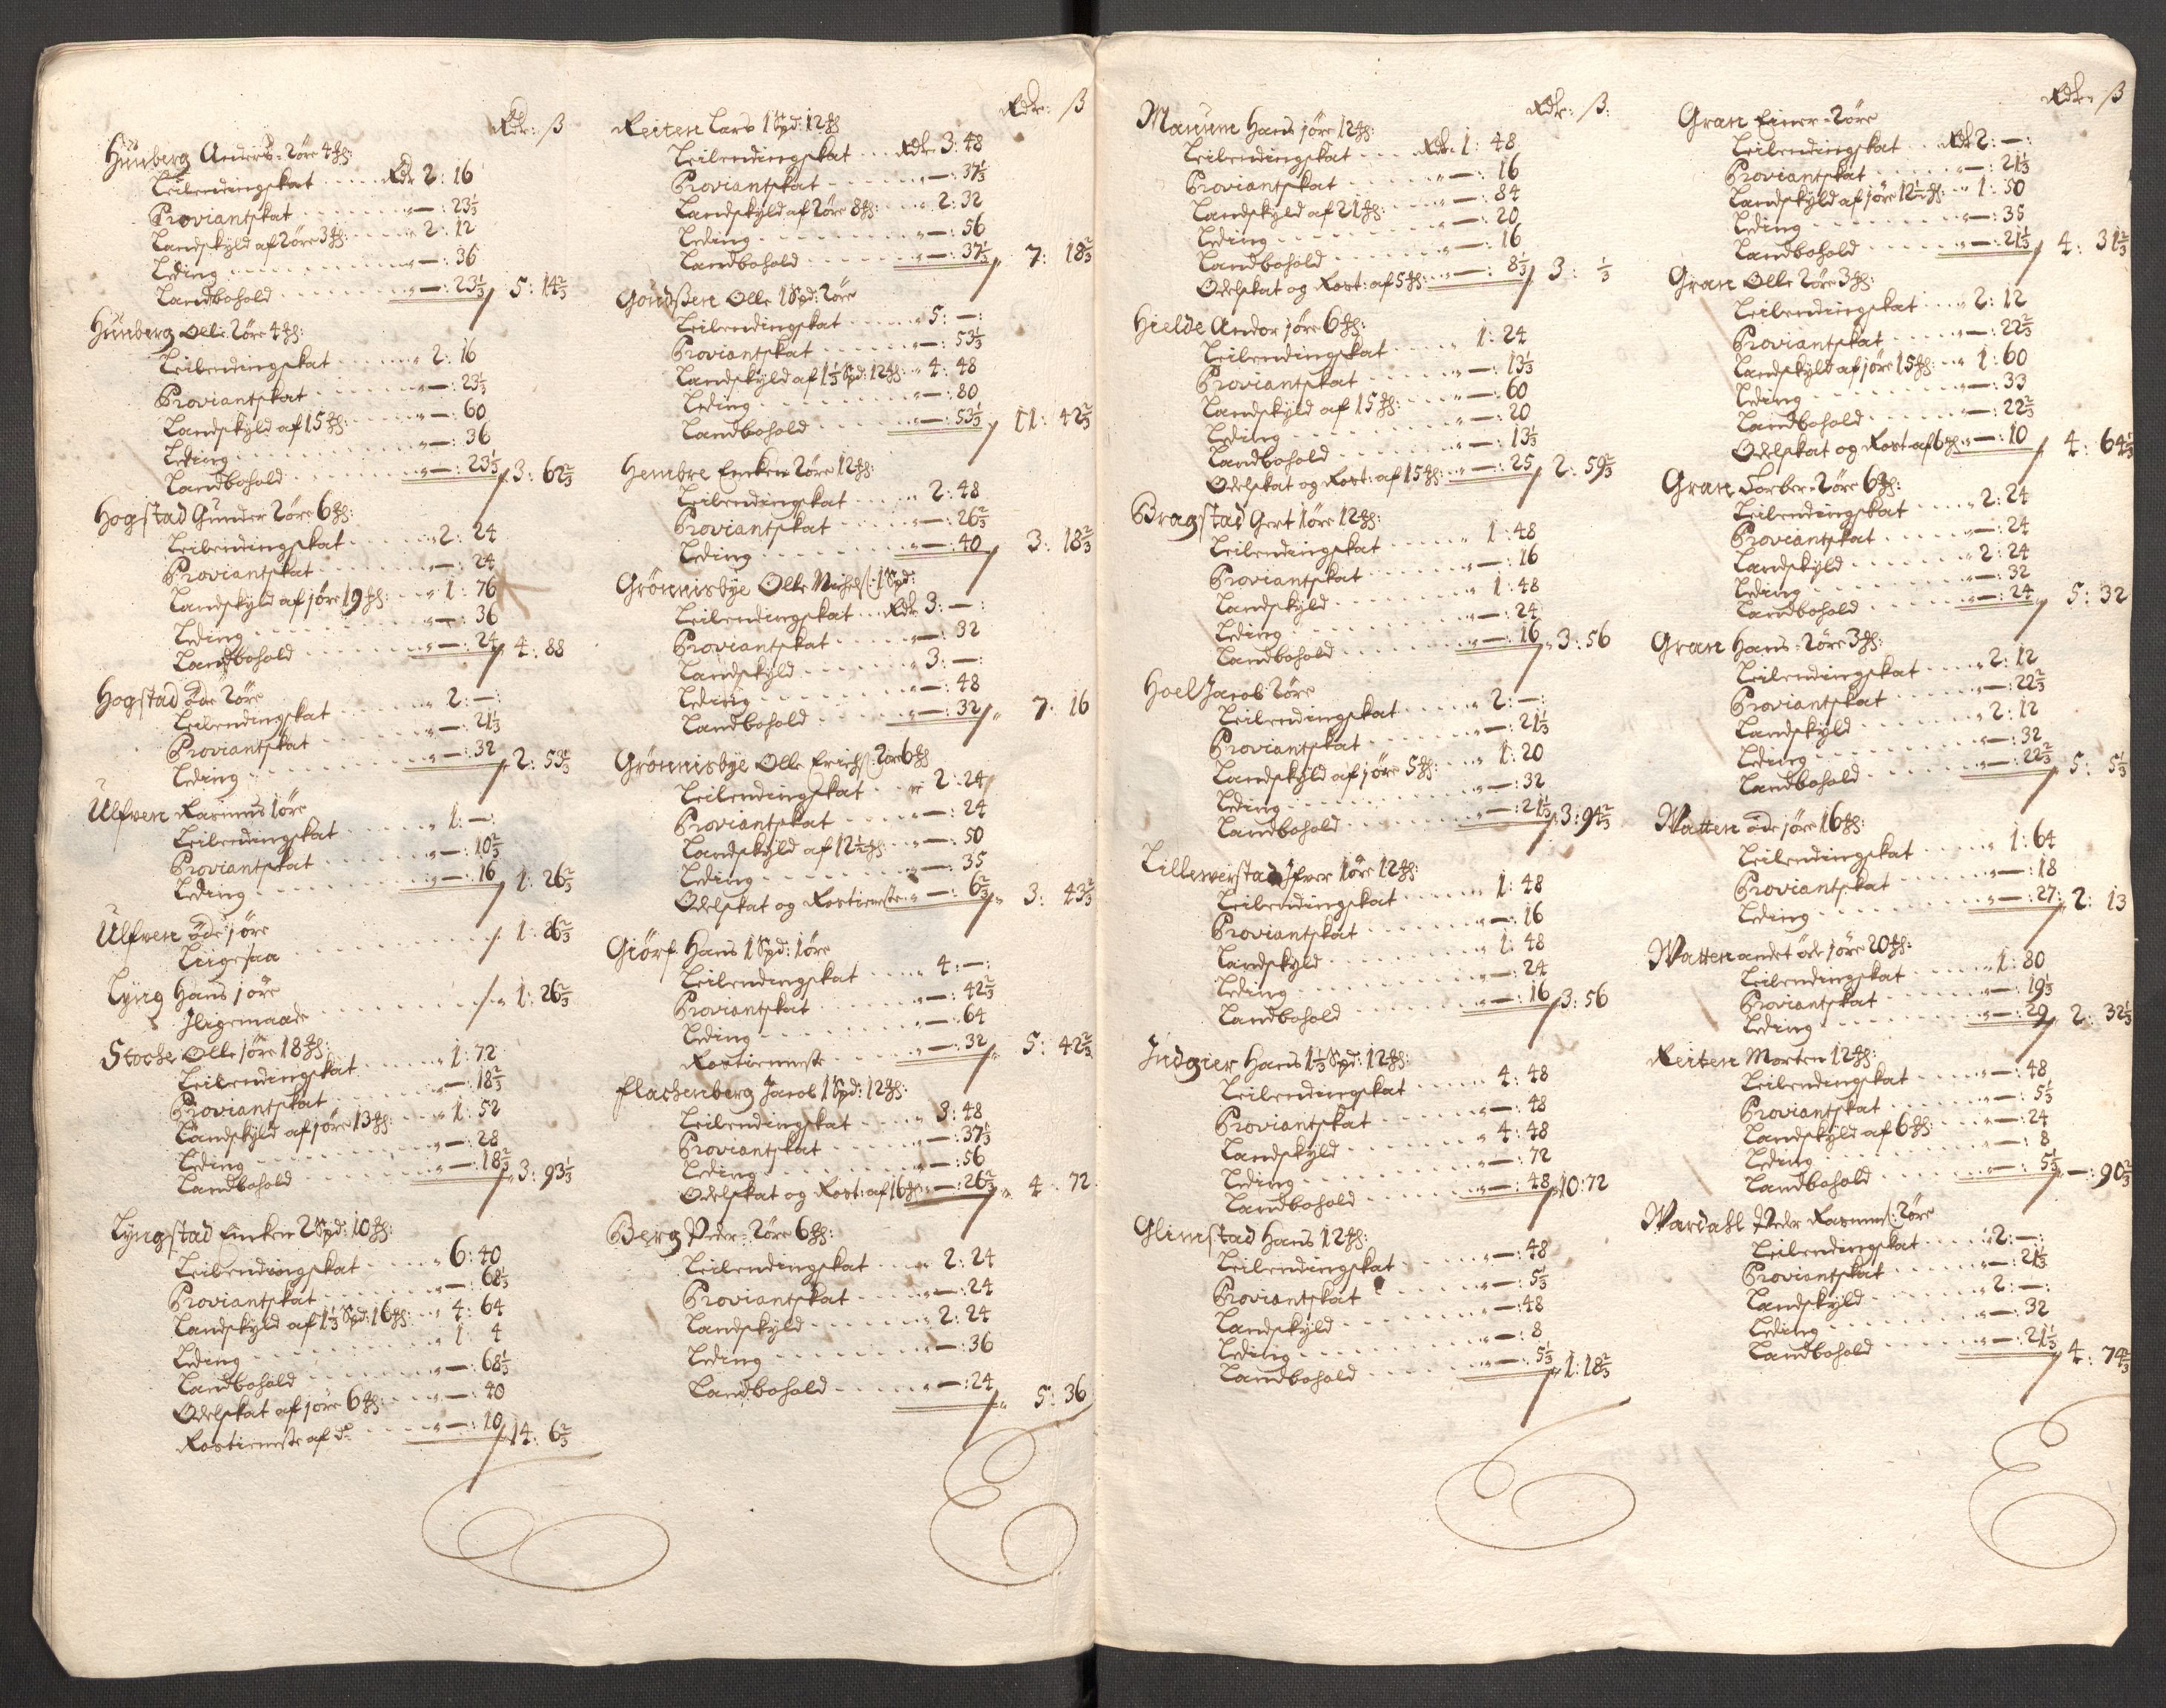 Rdr: ß
Hünberg Anders 2öre 4 ℔:
Leilendingskat Rdr 2: 16
Proviantskat —: 23⅓
Landskyld af 2öre 3 ℔: 2: 12
Leding —: 36
Landbohold —: 23⅓ 5: 14⅔
Hünberg Olle 2öre 4 ℔:
Leilendingskat 2: 16
Proviantskat —: 23⅓
Landskyld af 15 ℔: —: 60
Leding —: 36
Landbohold —: 23⅓ 3: 62⅔
Hogstad Gunder 2öre 6 ℔:
Leilendingskat 2: 24
Proviantskat —: 24
Landskyld af jöre 19 ℔: 1: 76
Leding —: 36
Landbohold —: 24 4: 88
Hogstad öde 2öre
Leilendingskat 2: —:
Proviantskat —: 21⅓
Leding —: 32 2: 53⅓
Ulfven Rasmus 1öre
Leilendingskat 1: —:
Proviantskat —: 10⅔
Leding —: 16 1: 26⅔
Ulfven öde jöre
Liigesaa 1: 26⅔
Lyng Hans jöre
Iligemaade 1: 26⅔
Stoche Olle jöre 18 ℔:
Leilendingskat 1: 72
Proviantskat —: 18⅔
Landskyld af jöre 13 ℔: 1: 52
Leding —: 28
Landbohold —: 18⅔ 3: 93⅓
Lyngstad Encken 2 Spd: 10 ℔:
Leilendingskat 6: 40
Proviantskat —: 68⅓
Landskyld af 1⅓ Spd: 16 ℔: 4: 64
Leding 1: 4
Landbohold —: 68⅓
Odelskat af jöre 6 ℔: —: 40
Rostieneste af do —: 10 14: 6⅔
Rdr: ß
Reiten Lars 1 Spd: 12 ℔
Leilendingskat Rdr 3: 48
Proviantskat —: 37⅓
Landskyld af 2öre 8 ℔: 2: 32
Leding —: 56
Landbohold —: 37⅓ 7: 18⅔
Goudßen Olle 1 Spd: 2öre
Leilendingskat 5: —:
Proviantskat —: 53⅓
Landskyld af 1⅓ Spd: 12 ℔: 4: 48
Leding —: 80
Landbohold —: 53⅓ 11: 42⅔
Hembre Encken 2öre 12 ℔:
Leilendingskat 2: 48
Proviantskat —: 26⅔
Leding —: 40 3: 18⅔
Grönnisbye Olle Nichels: 1 Spd:
Leilendingskat Rdr 3: —:
Proviantskat —: 32
Landskyld 3: —:
Leding —: 48
Landbohold —: 32 7: 16
Grönnisbye Olle Erichs: 2öre 6 ℔
Leilendingskat 2: 24
Proviantskat —: 24
Landskyld af 12½ ℔: —: 50
Leding —: 35
Odelskat og Rostieneste —: 6⅔ 3: 43⅔
Giörf Hans 1 Spd: 1öre
Leilendingskat 4: —:
Proviantskat —: 42⅔
Leding —: 64
Rostieneste —: 32 5: 42⅔
flachenberg Jacob 1 Spd: 12 ℔:
Leilendingskat 3: 48
Proviantskat —: 37⅓
Leding —: 56
Odelskat og Rost: af 16 ℔: —: 26⅔ 4: 72
Berg Peder 2öre 6 ℔:
Leilendingskat 2: 24
Proviantskat —: 24
Landskyld 2: 24
Leding —: 36
Landbohold —: 24 5: 36
Rdr: ß:
Manum Hans jöre 12 ℔:
Leilendingskat Rdr 1: 48
Proviantskat —: 16
Landskyld af 21 ℔: —: 84
Leding —: 20
Landbohold —: 16
Odelskat og Rost: af 5 ℔: —: 8⅓ 3: ⅓
Hielde Andor jöre 6 ℔:
Leilendingskat 1: 24
Proviantskat —: 13⅓
Landskyld af 15 ℔: —: 60
Leding —: 20
Landbohold —: 13⅓
Odelskat og Rost: af 15 ℔: —: 25 2: 59⅔
Bragstad Gert 1öre 12 ℔:
Leilendingskat 1: 48
Proviantskat —: 16
Landskyld 1: 48
Leding —: 24
Landbohold —: 16 3: 56
Hoel Jacob 2öre
Leilendingskat 2: —:
Proviantskat —: 21⅓
Landskyld af jöre 5 ℔: 1: 20
Leding —: 32
Landbohold —: 21⅓ 3: 94⅔
Lilleverstad Ifver 1öre 12 ℔:
Leilendingskat 1: 48
Proviantskat —: 16
Landskyld 1: 48
Leding —: 24
Landbohold —: 16 3: 56
Indgier Hans 1⅓ Spd: 12 ℔:
Leilendingskat 4: 48
Proviantskat —: 48
Landskyld 4: 48
Leding —: 72
Landbohold —: 48 10: 72
Glimstad Hans 12 ℔:
Leilendingskat —: 48
Proviantskat —: 5⅓
Landskyld —: 48
Leding —: 8
Landbohold —: 5⅓ 1: 18⅔
Rdr: ß
Gran Einer 2öre
Leilendingskat Rdr 2: —:
Proviantskat —: 21⅓
Landskyld af jöre 12½ ℔: 1: 50
Leding —: 35
Landbohold —: 21⅓ 4: 31⅔
Gran Olle 2öre 3 ℔:
Leilendingskat 2: 12
Proviantskat —: 22⅔
Landskyld af jöre 15 ℔: 1: 60
Leding —: 33
Landbohold —: 22⅔
Odelskat og Rost af 6 ℔ —: 10 4: 64⅓
Gran Torber 2öre 6 ℔:
Leilendingskat 2: 24
Proviantskat —: 24
Landskyld 2: 24
Leding —: 32
Landbohold —: 24 5: 32
Gran Hans 2öre 3 ℔:
Leilendingskat 2: 12
Proviantskat —: 22⅔
Landskyld 2: 12
Leding —: 32
Landbohold —: 22⅔ 5: 5⅓
Watten öde jöre 16 ℔:
Leilendingskat 1: 64
Proviantskat —: 18
Leding —: 27: 2: 13
Watten andet öde jöre 20 ℔:
Leilendingskat 1: 80
Proviantskat —: 19⅓
Leding —: 29 2: 32⅓
Reiten Morten 12 ℔:
Leilendingskat —: 48
Proviantskat —: 5⅓
Landskyld af 6 ℔: —: 24
Leding —: 8
Landbohold —: 5⅓ —: 90⅔
Wardahl Peder Rasmus: 2öre
Leilendingskat 2: —:
Proviantskat —: 21⅓
Landskyld 2: —:
Leding —: 32
Landbohold —: 21⅓ 4: 74⅔